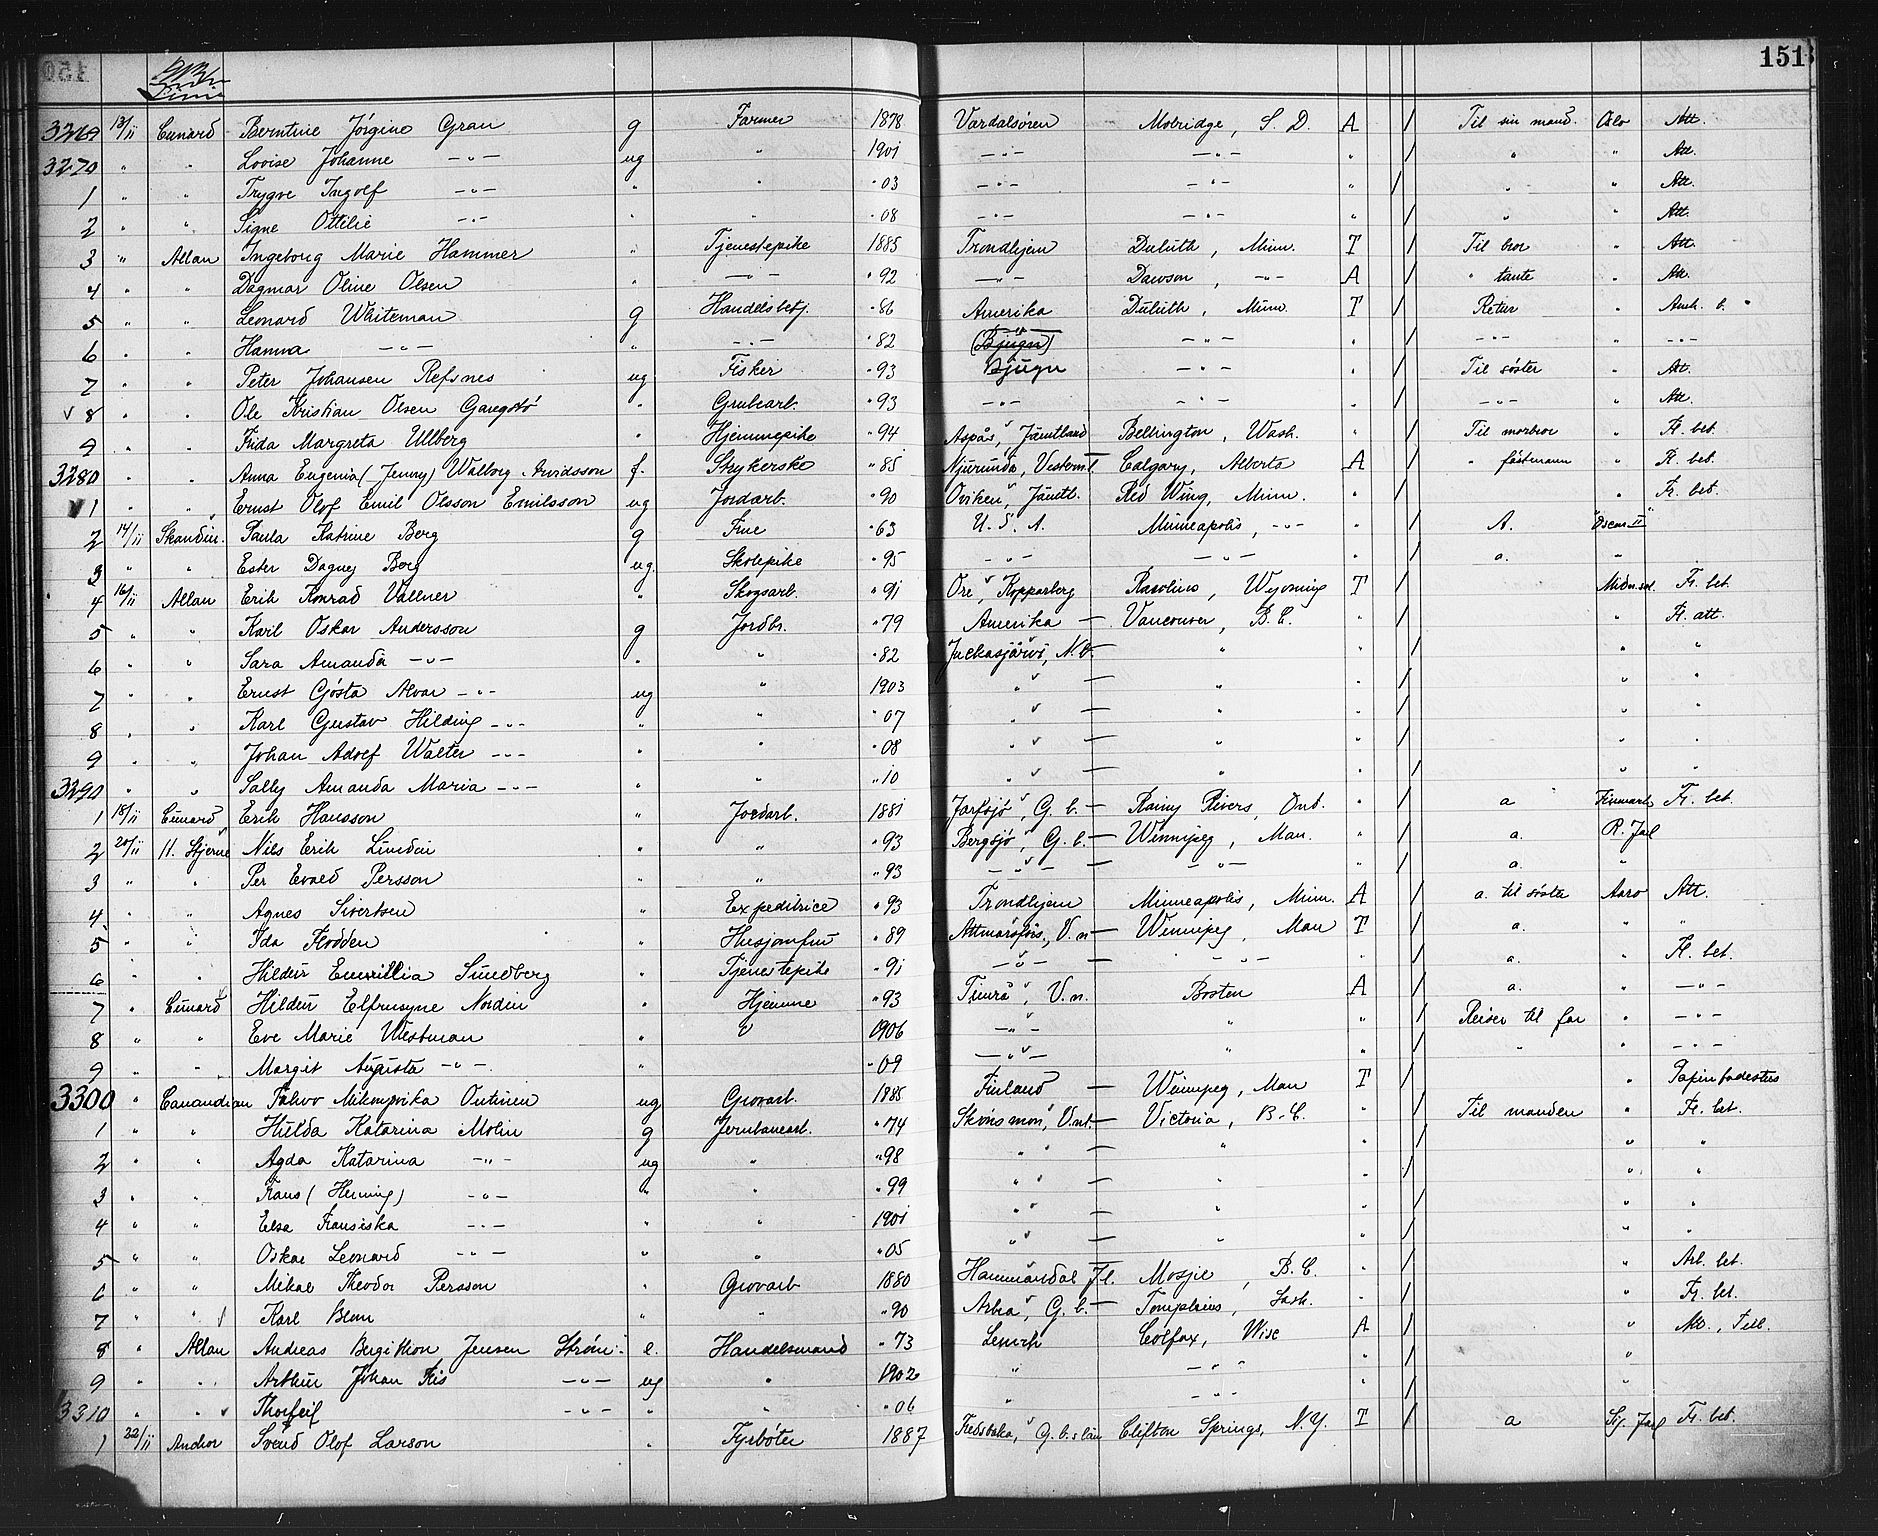 151
Linie
3269 13/11 Cunard Berntine Jørgine Gran g Farmer 1878 Værdalsøren Mobridge, S. D. A / Til sin mand. Oslo Att.
3270 " " Lovise Johanne —"— ug " " 1901 —"— —"— " / " " Att.
1 " " Trygve Ingolf —"— " " " 03 —"— —"— " / " " Att.
2 " " Signe Ottilie —"— " " " 08 —"— —"— " / " " Att.
3 " Allan Ingeborg Marie Hammer " Tjenestepike 1885 Trondhjem Duluth, Minn. T / Til bror " Att.
4 " " Dagmar Oline Olsen " —"— " 92 —"— Dawson, —"— A / " tante " Att.
5 " " Leonard Whiteman g Handelsbetj. " 86 Amerika Duluth, Minn. T / Retur "
6 " " Hanna —"— " —"— " 82 (Bjugn) —"— " / —"— " —"—
7 " " Peter Johansen Refsnes ug Fisker " 93 Bjugn —"— " / Til søster " Att.
8 " " Ole Kristian Olsen " Grubearb. " 93 —"— —"— " / —"— " Att.
9 " " Frida Margreta Ullberg " Hjemmepike " 94 Aspås, Jämtland Bellington, Wash. " / Til morbror " Fr. bet.
3280 " " Anna Eugenia (Jenny) Walborg Arvidsson f. Strykerske " 85 Njurunda, Calgary, Alberta A / " fästmann " Fr. bet.
1 " " Ernst Olof Emil Olsson Emilsson ug Jordarb. " 90 Oviken, Jämtl. Red Wing, Minn. " / " Fr. bet.
2 14/11 Skandin. Paula Katrine Berg g Frue " 63 U. S. A. Minneapolis, —"— " / A. "Oscar II"
3 " " Ester Dagny Berg ug. Skolepike " 95 —"— —"— " / a. "
4 16/11 Allan Erik Konrad Vallner " Skogsarb. " 91 Ore, Kopparberg Rawlins, Wyoming T / Midn.sol Fr. bet.
5 " " Karl Oskar Andersson g Jordbr. " 79 Amerika — Vancouver, B. C. " / " Fr. att.
6 " " Sara Amanda —"— " " " 82 Juckasjärvi, N.b. " " / " "
7 " " Ernst Gösta Alvar —"— ug " 1903 " — " " / " "
8 " " Karl Gustav Hilding —"— " " " 07 " — " " / " "
9 " " Johan Adolf Walter —"— " " " 08 " — " " / " "
3290 " " Sally Amanda Maria —"— " " " 10 " — " " / " "
1 18/11 Cunard Erik Hansson " Jordarb. 1881 Jarfsjö, G. b. — Rainy Rivers, Ont. " / a Finmark Fr. bet.
2 20/11 H. Stjerne Nils Erik Lindén " " " 93 Bergsjö, G. b. — Winnipeg, Man. " / a. R. Jarl
3 " " Per Evald Persson " " " 93 —"— — —"— " / a. "
4 " " Agnes Sivertsen " Expeditrice " 93 Trondhjem Minneapolis, Minn. A / a. til søster Aaro Att.
5 " " Ida Flodden " Husjomfru " 89 V. n — Winnipeg, Man T / a. " "
6 " " Hildur Emillia Sundberg " Tjenestepike " 91 —"— — —"— " / a. " Fr. bet.
7 " Cunard Hildur Elfrusyne Nordin " Hjemme " 93 Timrå, V. n. Boston A / a. " —"—
8 " " Eve Marie Westman " " 1906 —"— " " / Reiser til far " —"—
9 " " Margit Augusta —"— " " 09 —"— " " / " " —"—
3300 " Canandian ug Grovarb. 1885 Finland — Winnipeg, Man T / "
1 " " Hulda Katarina Molin g Jernbanearb. " 74 Skönsmon, V.nl. — Victoria, B. C. " / Til manden " Fr. bet.
2 " " Agda Katarina —"— ug " " 98 " — " " / " "
3 " " Frans (Heming) —"— " " " 99 " — " " / " "
4 " " Elsa Fransiska —"— " " 1901 " — " " / " "
5 " " Oskar Leonard —"— " " " 05 " — " " / " "
6 " " Mikael Theodor Persson " Grovarb 1880 Hammerdal Jl. Mosjie, B. C. " / " Arb. bet.
7 " " Karl Blom " " " 90 Arbrå, G. b. — Tompkins, Sask. " / " Fr. bet.
8 " Allan Andreas Bergithon Jensen Strøm e. Handelsmand " 73 Lenvik Colfax, Wisc A / "
9 " " Arthur Johan Fris —"— ug " 1902 " —"— " / "
3310 " " Thorleif —"— " " " 06 " —"— " / "
1 22/11 Anchor Svend Olof Larson " Fyrbøter 1887 G.b.s län Clifton Springs, N. Y. T / a Sig. Jarl Fr. bet.